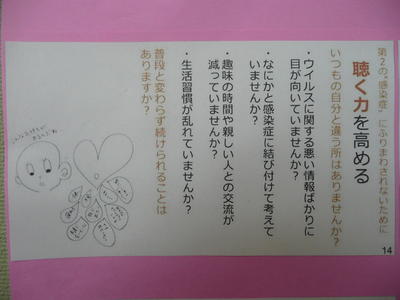 第2の“感染症”にふりまわされないために
聴く力を高める
いつもの自分と違う所はありませんか?
・ウイルスに関する悪い情報ばかりに
目が向いていませんか?
・なにかと感染症に結び付けて考えて
いませんか?
・趣味の時間や親しい人との交流が
減っていませんか?
・生活習慣が乱れていませんか?
普段と変わらず続けられることは
ありますか?
14